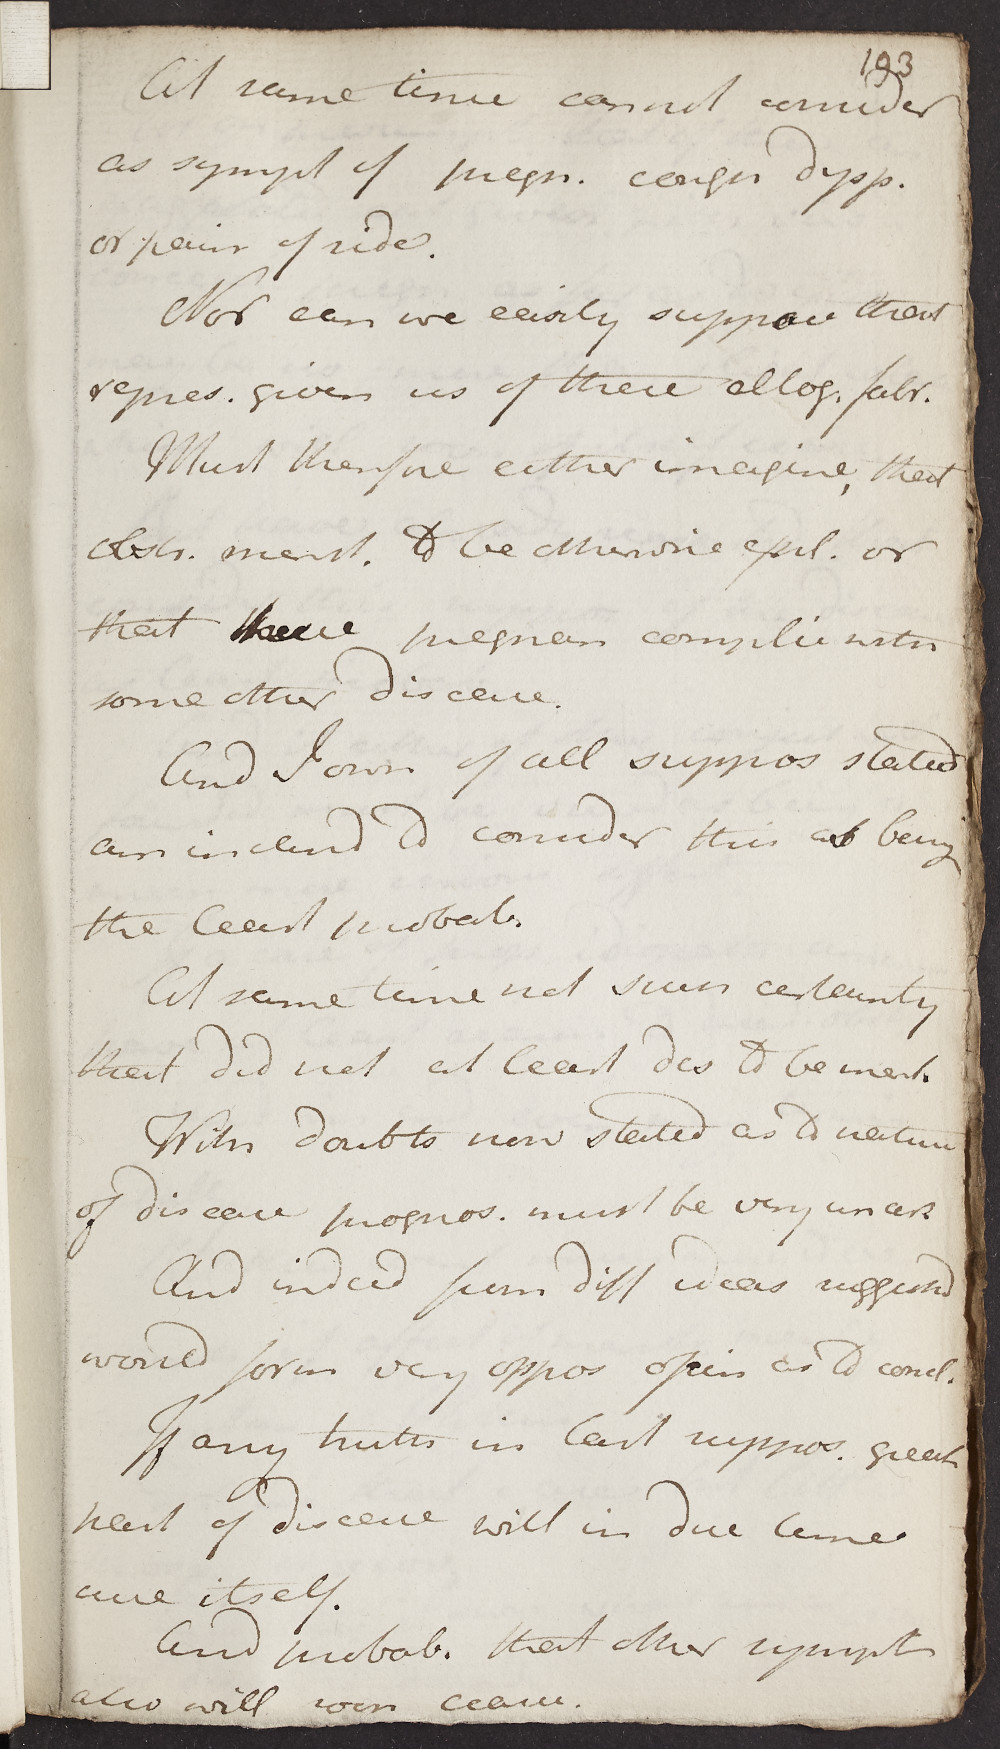 193
At same time cannot consider
as sympt of pregn. cough dysp.
or pain of side.
Nor can we easily suppose that
repres. given us of these altog. fabr.
Must therefore either imagine, that
obstr. menst. to be otherwise expl. or
that these pregnan complic with
some other disease.
And I own of all suppos stated
am inclind to consider this as being
the least probab.
At same time not such certainty
that did not at least des to be ment.
With doubts now stated as to nature
of disease prognos. must be very uncert
And indeed from diff ideas suggested
would form very oppos opin as to concl.
If any truth in last suppos. great
part of disease will in due time
cure itself.
And probab. that other sympt
also will soon cease.